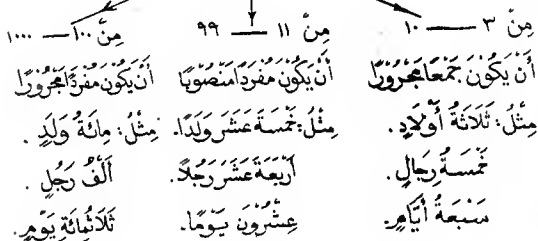 مِنْ ٣ — ١٠
أَنْ يَكُوْنَ جَمْعًا مَجْرُوْرًا
مِثْلُ: ثَلَاثَةُ أَوْلَادٍ.
خَمْسَةُ رِجَالٍ.
سَبْعَةُ أَيَّامٍ.
مِنْ ١١ — ٩٩
أَنْ يَكُوْنَ مُفْرَدًا مَنْصُوْبًا
مِثْلُ: خَمْسَةَ عَشَرَ وَلَدًا.
أَرْبَعَةَ عَشَرَ رَجُلًا.
عِشْرُوْنَ يَوْمًا.
مِنْ ١٠٠ — ١٠٠٠
أَنْ يَكُوْنَ مُفْرَدًا مَجْرُوْرًا
مِثْلُ: مِائَةُ وَلَدٍ.
أَلْفُ رَجُلٍ.
ثَلَاثُمِائَةِ يَوْمٍ.